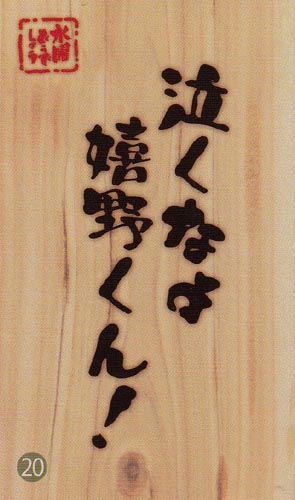 泣くなよ
嬉野くん！
水曜
どうでしょう
20